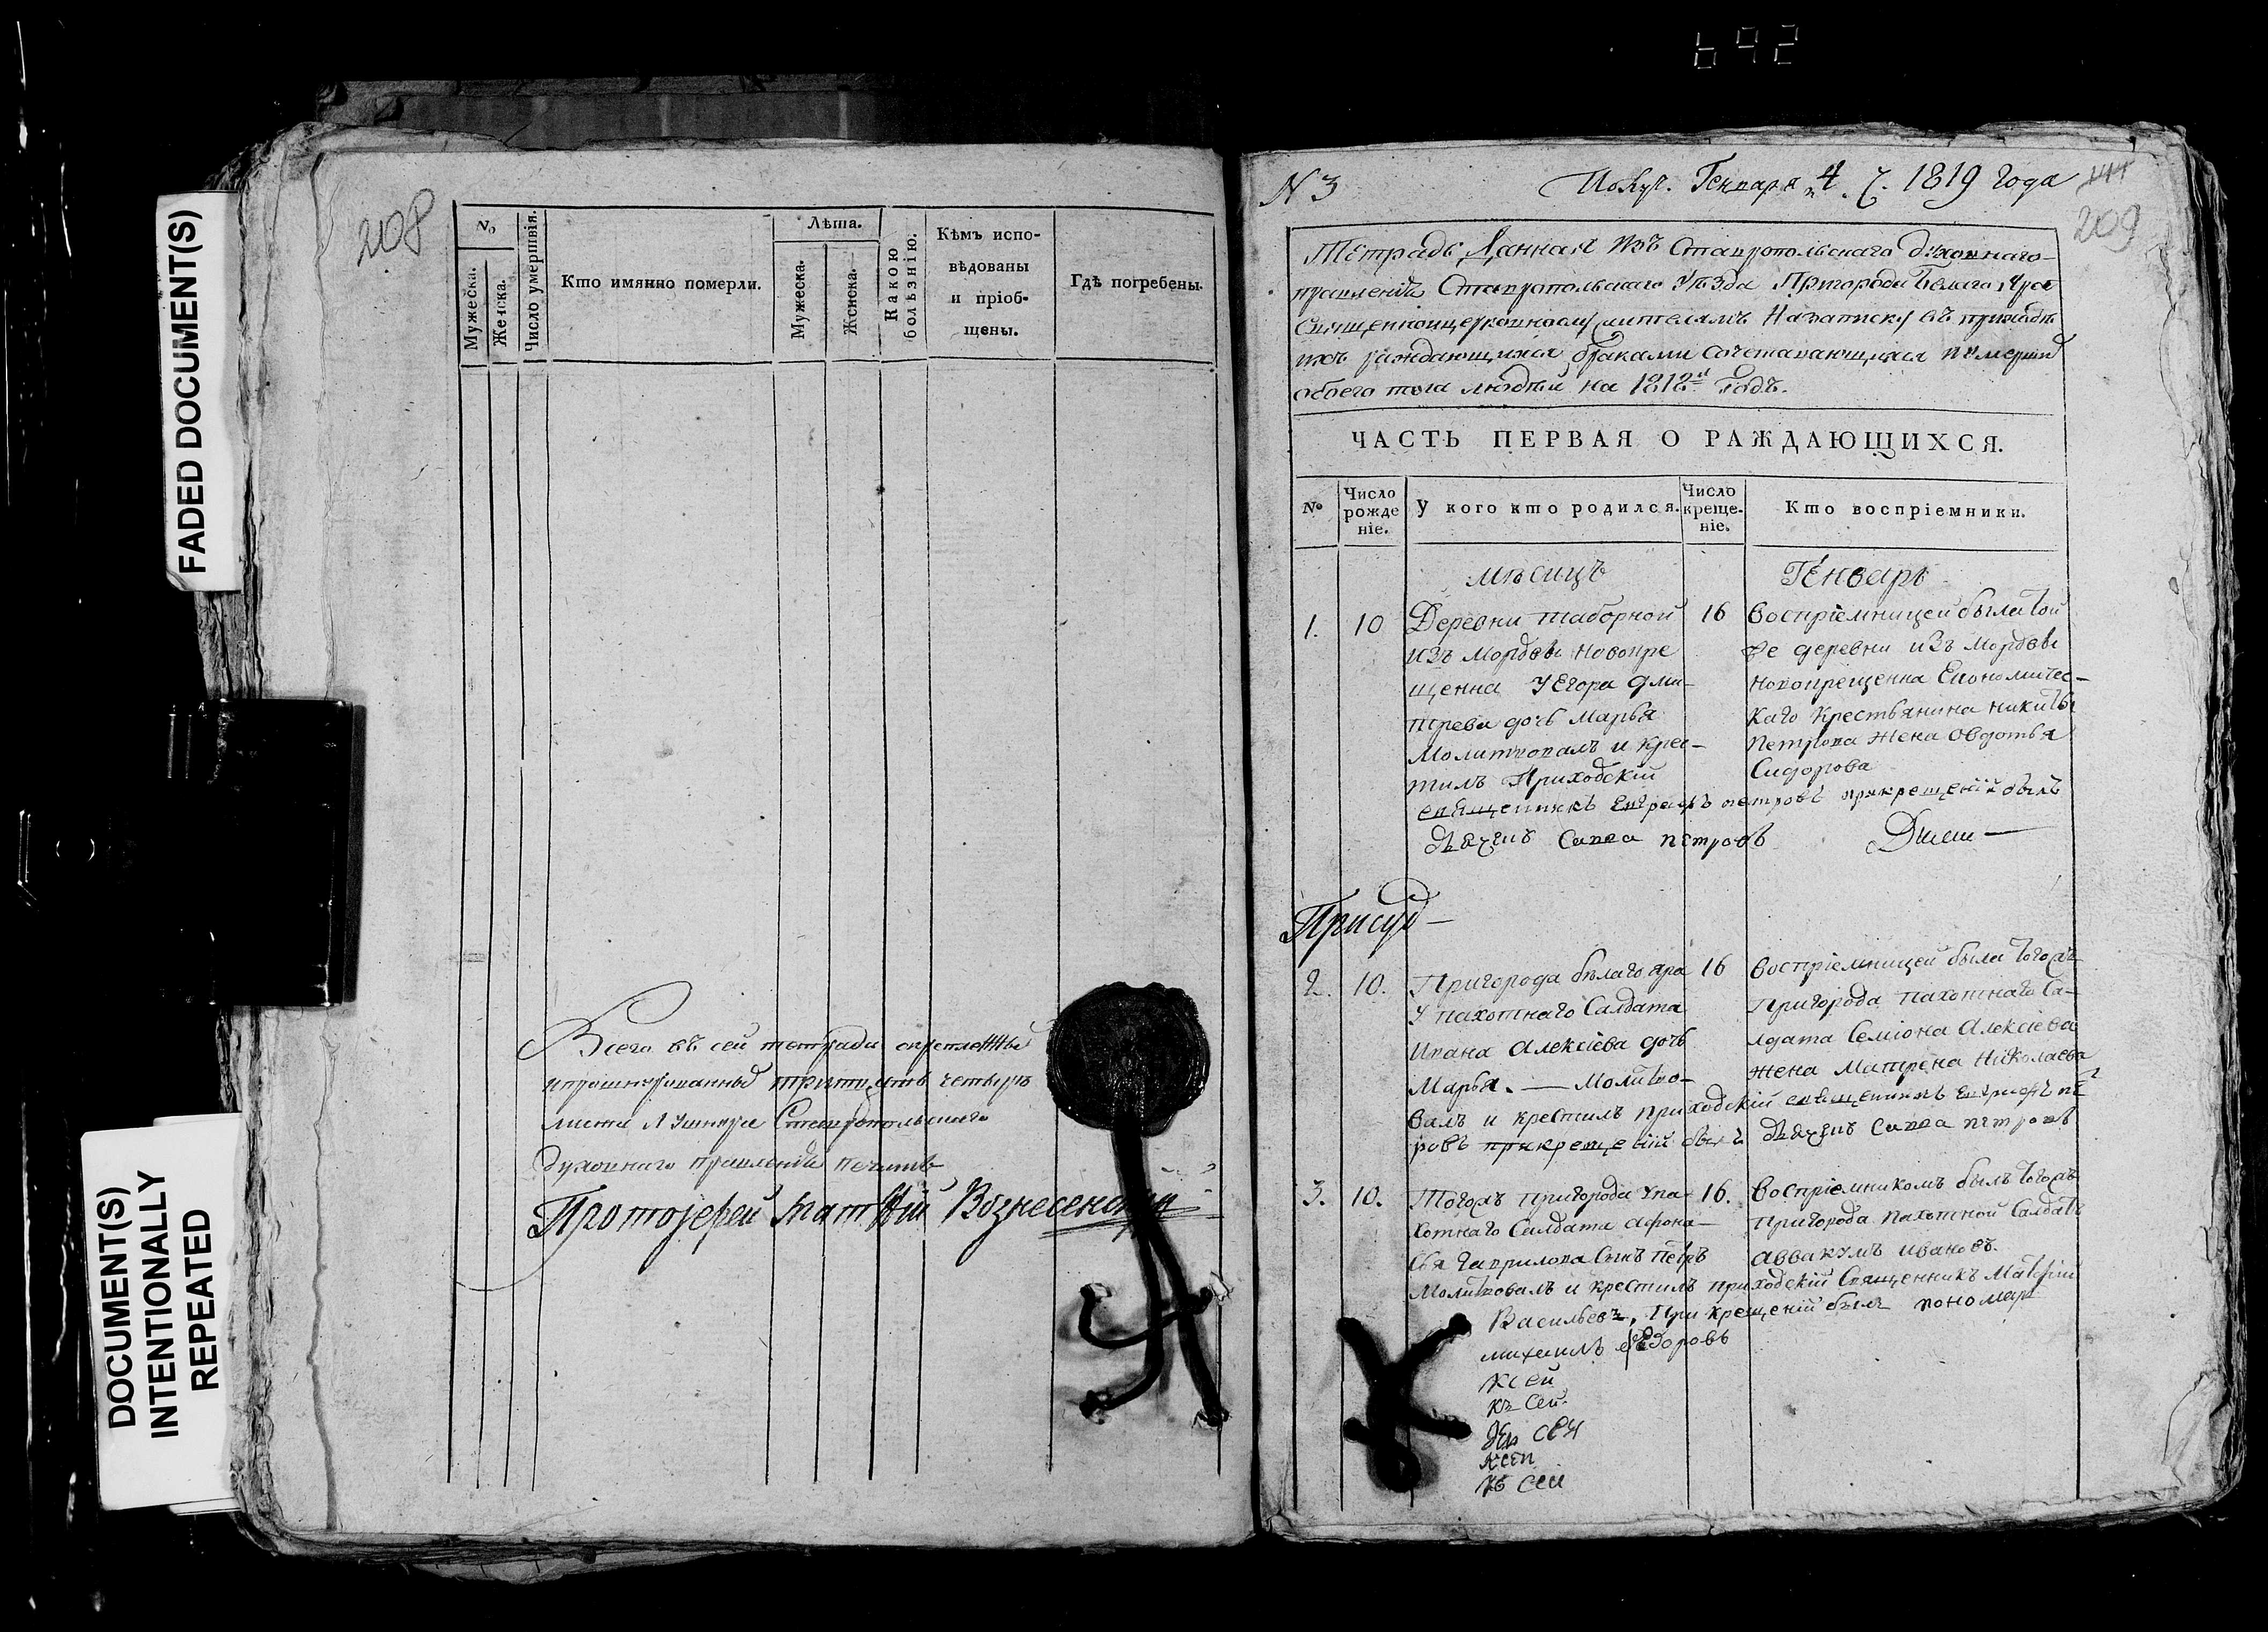 642
FADED DOCUMENT(S)
DOCUMENT(S)
INTENTIONALLY
REPEATED
208
№
Мужеска.
Женска.
Число умершвія.
Кто имянно померли.
Лѣта.
Мужеска.
Женска.
Какою
болѣзнію.
Кѣмъ испо-
вѣдованы
и пріоб-
щены.
Гдѣ погребены.
Всего въ сей тетради скрепленныхъ
и прошнурованныхъ тритцать четыре
листа Ставропольскаго
духовнаго правленія печать
Протоіерей Матѳій Вознесенскій
N 3
Получ. Генваря 4 ч. 1819 года
209
Тетрадь Данная изъ Ставропольскаго духовнаго
правленія Ставропольскаго уѣзда Пригорода Белаго Яра
Священноцерковнослужителямъ На записку въ приходѣ
ихъ раждающихся браками сочетавающихся и умершихъ
обоего пола людѣй на 1818й годъ.
ЧАСТЬ ПЕРВАЯ О РАЖДАЮЩИХСЯ.
№
Число
рожде
ніе.
У кого кто родился.
Число
креще-
ніе.
Кто воспріемники.
Мѣсицъ
Генварь
1.
10
Деревни таборной
изъ Мордвы новокре
щенна У Егора Дми-
трева дочь Марья
Молитвовалъ и крес-
тилъ Приходскій
священникъ петровъ прикрещеніи былъ
дьячекъ Савва петровъ
16
Воспріемницей была той
же деревни изъ Мордвы
новокрещенна Економичес-
каго крестьянина никиты
Петрова жена овдотья
Сидорова
2.
10.
Пригорода бѣлаго яра
У пахотнаго Салдата
Ивана Алексіева дочь
Марья. — Молитво-
валъ и крестилъ приходскій священникъ пет
ровъ прикрещеніи былъ дьячекъ Савва петровъ
16
Воспріемницей была тогожъ
Пригорода пахотнаго Са-
лдата Семіона Алексіева
жена Матрена Николаева
3.
10.
Тогожъ пригорода У па-
хотнаго Салдата Афона-
сья Гаврилова Сынъ Петръ
Молитвовалъ и крестилъ приходскій Священникъ Матѳій
Васильевъ, При крещеніи былъ пономарь
михаилъ ѳедоровъ
16.
Воспріемникомъ былъ тогожъ
Пригорода пахотной Салдатъ
аввакумъ ивановъ.
къ сей
къ сей
къ сей